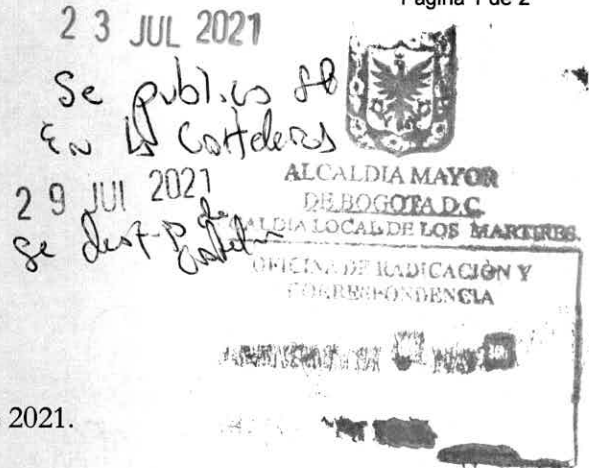 Página 1 de 2
23 JUL 2021
Se publico
En la Carteleras
29 JUL 2021
se desf
ALCALDIA MAYOR
DE BOGOTA D.C.
ALCALDIA LOCAL DE LOS MARTIRES.
OFICINA DE RADICACIÓN Y
CORRESPONDENCIA
2021.